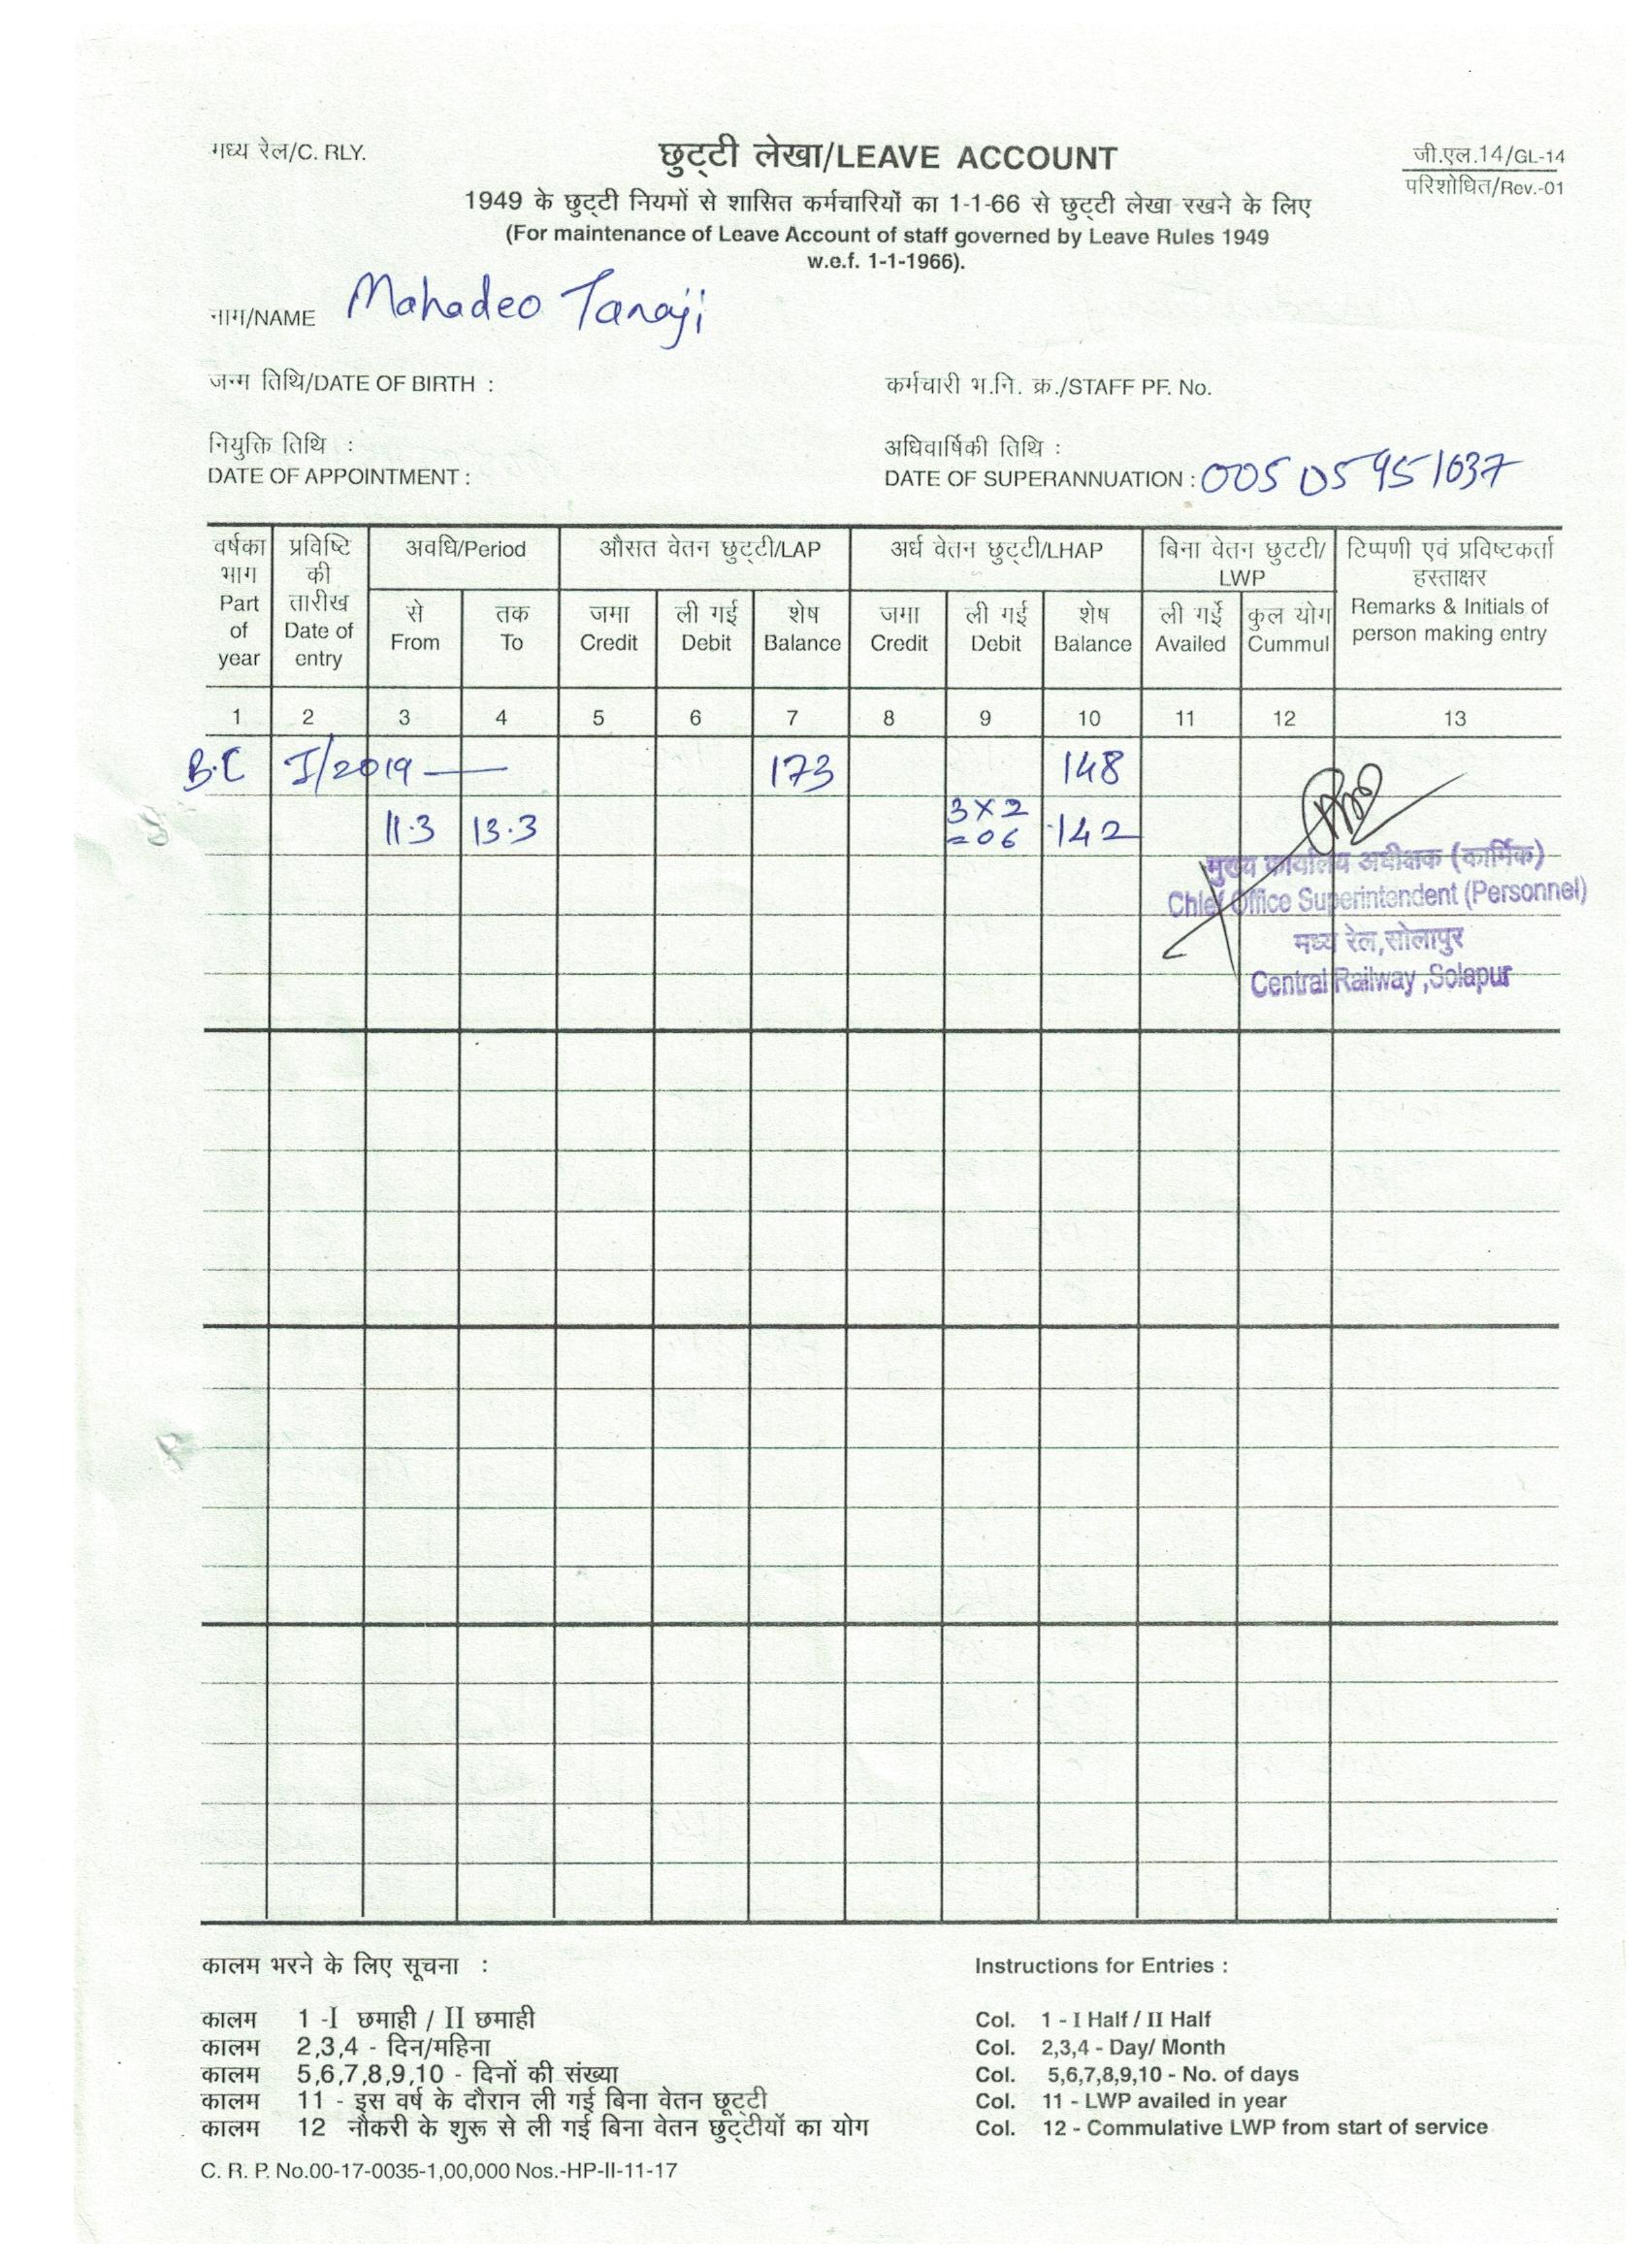 मध्य रेल/C. RLY.
छुट्टी लेखा/LEAVE ACCOUNT
जी.एल.14/GL-14
परिशोधित/Rev.-01
1949 के छुट्टी नियमों से शासित कर्मचारियों का 1-1-66 से छुट्टी लेखा रखने के लिए
(For maintenance of Leave Account of staff governed by Leave Rules 1949
w.e.f. 1-1-1966).
नाम/NAME Mahadeo Tanaji
जन्म तिथि/DATE OF BIRTH :
कर्मचारी भ.नि. क्र./STAFF PF. No.
नियुक्ति तिथि :
DATE OF APPOINTMENT :
अधिवार्षिकी तिथि :
DATE OF SUPERANNUATION : 00505951037
वर्षका भाग Part of year
प्रविष्टि की तारीख Date of entry
अवधि/Period
औसत वेतन छुट्टी/LAP
अर्ध वेतन छुट्टी/LHAP
बिना वेतन छुटटी/ LWP
टिप्पणी एवं प्रविष्टकर्ता हस्ताक्षर Remarks & Initials of person making entry
से From
तक To
जमा Credit
ली गई Debit
शेष Balance
जमा Credit
ली गई Debit
शेष Balance
ली गई Availed
कुल योग Cummul
1 2 3 4 5 6 7 8 9 10 11 12 13
B.C I/2019 — 173 148
11.3 13.3 3x2 =06 142
मुख्य कार्यालय अधीक्षक (कार्मिक)
Chief Office Superintendent (Personnel)
मध्य रेल,सोलापुर
Central Railway ,Solapur
कालम भरने के लिए सूचना :
कालम 1 -I छमाही / II छमाही
कालम 2,3,4 - दिन/महिना
कालम 5,6,7,8,9,10 - दिनों की संख्या
कालम 11 - इस वर्ष के दौरान ली गई बिना वेतन छूट्टी
कालम 12 नौकरी के शुरू से ली गई बिना वेतन छुट्टीयों का योग
Instructions for Entries :
Col. 1 - I Half / II Half
Col. 2,3,4 - Day/ Month
Col. 5,6,7,8,9,10 - No. of days
Col. 11 - LWP availed in year
Col. 12 - Commulative LWP from start of service
C. R. P. No.00-17-0035-1,00,000 Nos.-HP-II-11-17